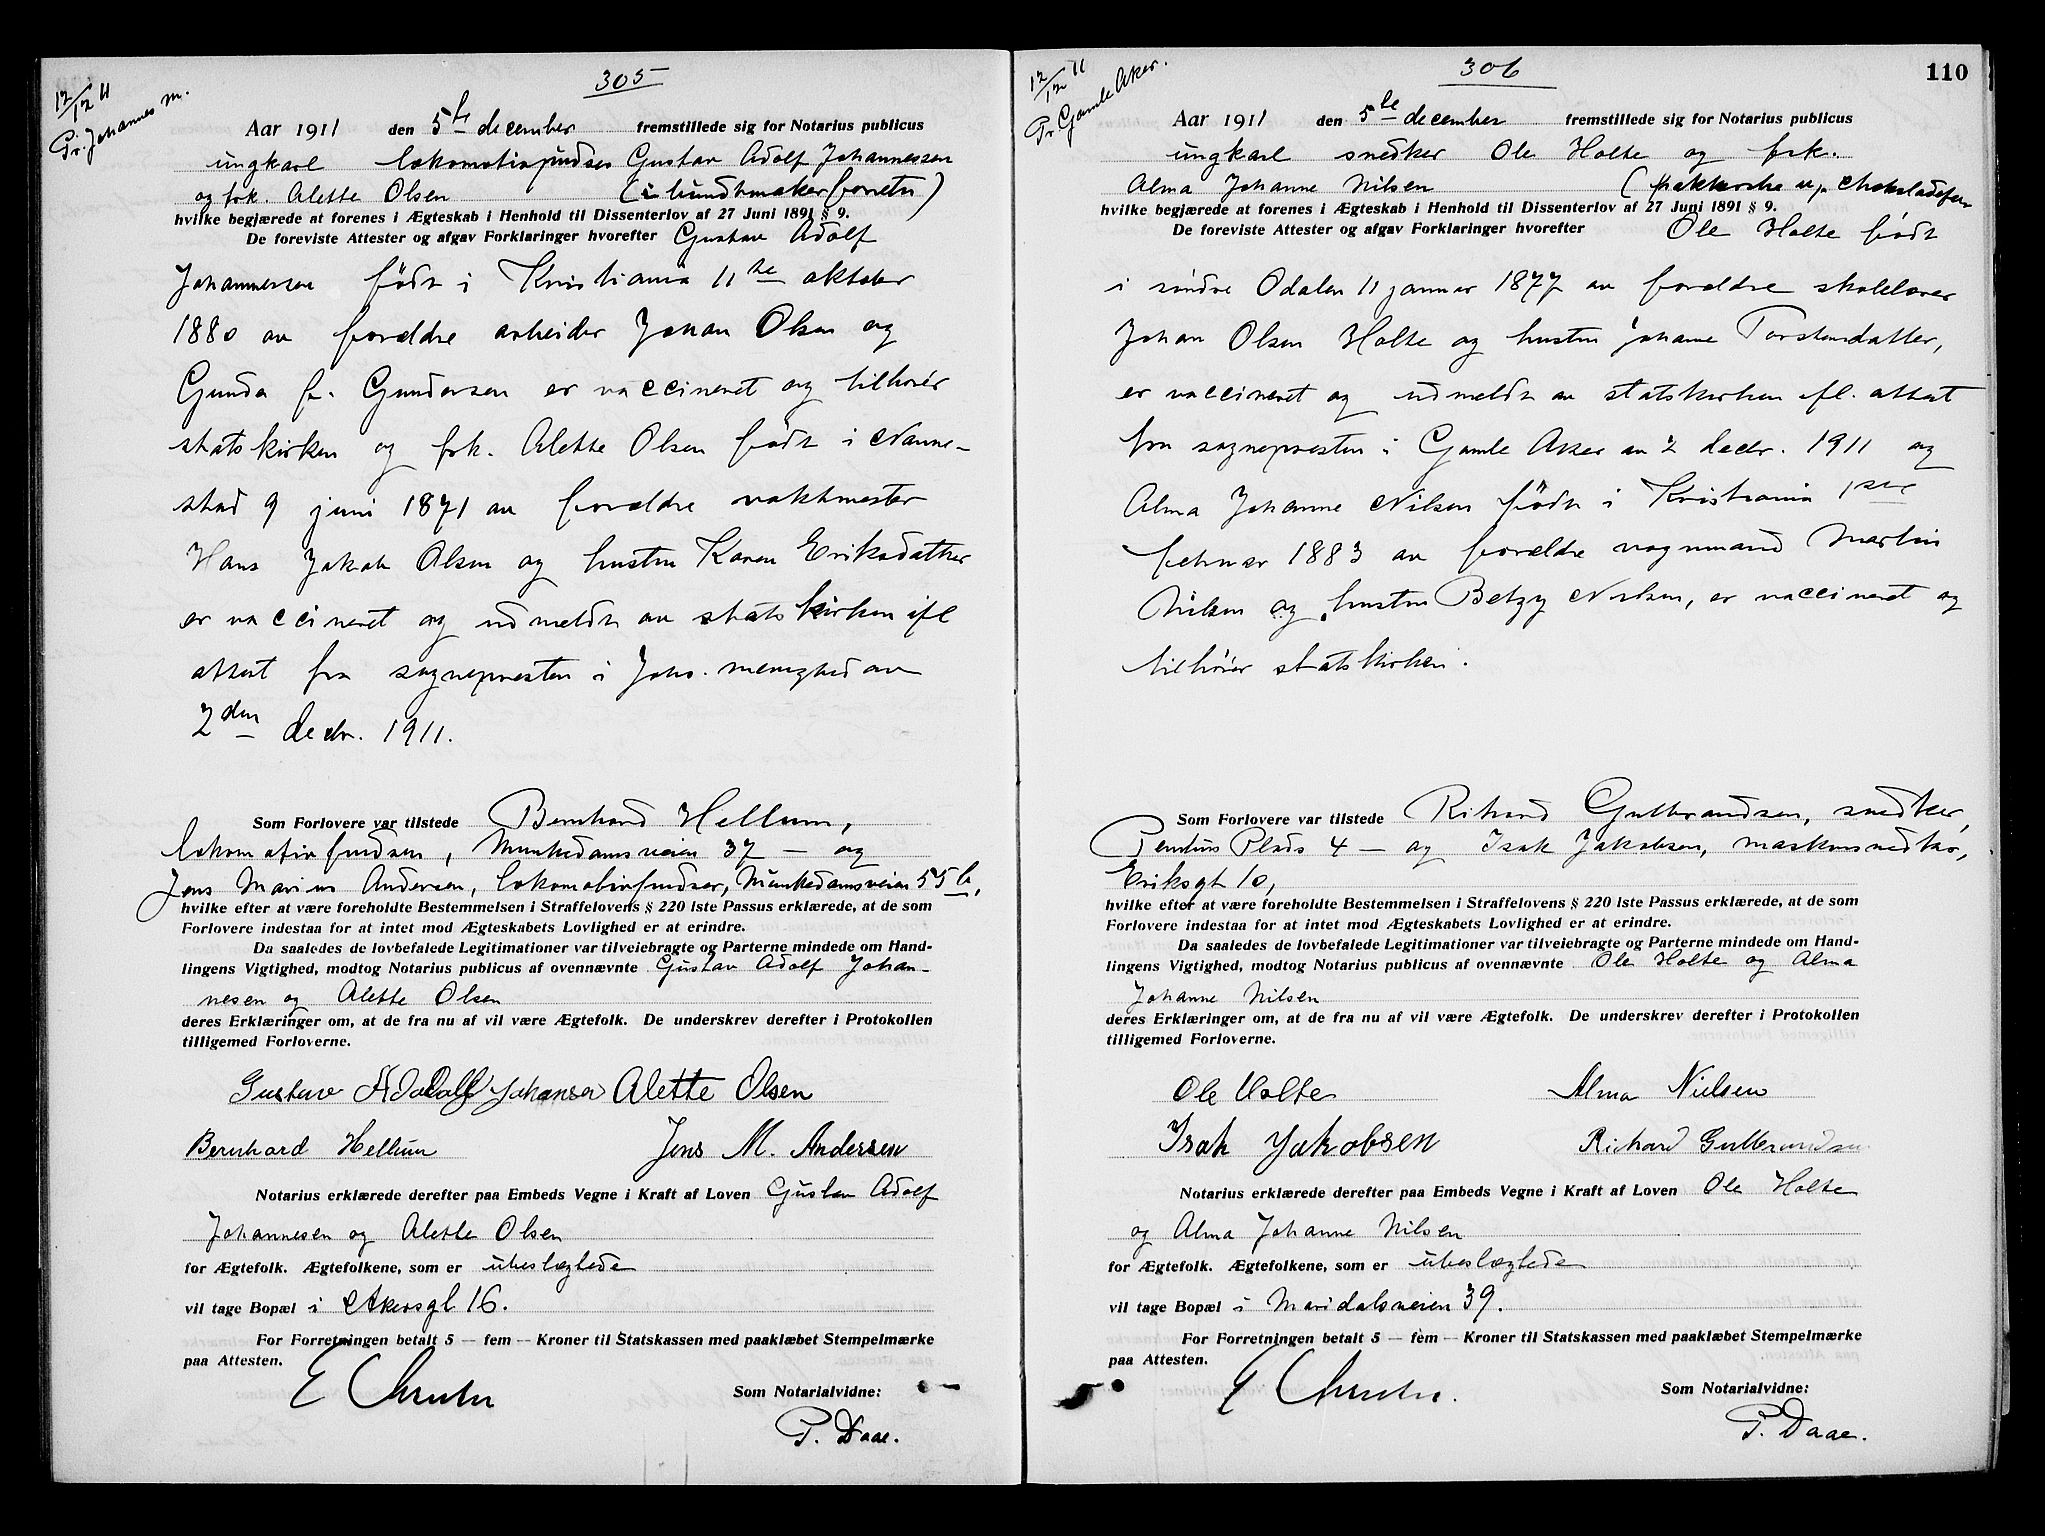 12/12 11
Pr. Johannes m.
305
Aar 1911 den 5te december fremstillede sig for Notarius publicus
ungkarl lokomotivpudser Gustav Adolf Johannessen
og frk. Alette Olsen (i bundtmakerforretn)
hvilke begjærede at forenes i Ægteskab i Henhold til Dissenterlov af 27 Juni 1891 § 9.
De foreviste Attester og afgav Forklaringer hvorefter Gustav Adolf
Johannessen född i Kristiania 11te oktober
1880 av forældre arbeider Johan Olsen og
Gunda f. Gundersen er vaccineret og tilhører
statskirken og frk. Alette Olsen född i Nanne-
stad 9 juni 1871 av forældre vaktmester
Hans Jakob Olsen og hustru Karen Eriksdatter
er vaccineret og udmeldt av statskirken ifl
attest fra sognepresten i Johs. menighed av
2den decbr. 1911.
Som Forlovere var tilstede Bernhard Hellum,
lokomotivpudser, Munkedamsveien 37 – og
Jens Marius Andersen, lokomotivpudser, Munkedamsveien 55b,
hvilke efter at være foreholdte Bestemmelsen i Straffelovens § 220 1ste Passus erklærede, at de som
Forlovere indestaa for at intet mod Ægteskabets Lovlighed er at erindre.
Da saaledes de lovbefalede Legitimationer var tilveiebragte og Parterne mindede om Hand-
lingens Vigtighed, modtog Notarius publicus af ovennævnte Gustav Adolf Johan-
nesen og Alette Olsen
deres Erklæringer om, at de fra nu af vil være Ægtefolk. De underskrev derefter i Protokollen
tilligemed Forloverne.
Gustav Adolf Johansen Alette Olsen
Bernhard Hellum Jens M. Andersen
Notarius erklærede derefter paa Embeds Vegne i Kraft af Loven Gustav Adolf
Johannesen og Alette Olsen
for Ægtefolk. Ægtefolkene, som er ubeslægtede
vil tage Bopæl i Akersgt 16.
For Forretningen betalt 5 — fem — Kroner til Statskassen med paaklæbet Stempelmærke
paa Attesten.
Som Notarialvidne:
P. Daae.
12/12 11
Pr. Gamle Aker.
306
110
Aar 1911 den 5te december fremstillede sig for Notarius publicus
ungkarl snedker Ole Holte og frk.
Alma Johanne Nilsen
hvilke begjærede at forenes i Ægteskab i Henhold til Dissenterlov af 27 Juni 1891 § 9.
De foreviste Attester og afgav Forklaringer hvorefter Ole Holte född
i søndre Odalen 11 januar 1877 av forældre skolelærer
Johan Olsen Holte og hustru Johanne Torstensdatter,
er vaccineret og udmeldt av statskirken ifl. attest
fra sognepresten i Gamle Aker av 2 decbr. 1911 og
Alma Johanne Nilsen född i Kristiania 1ste
februar 1883 av forældre vognmand Martin
Nilsen og hustru Betzy Nilsen, er vaccineret og
tilhører statskirken.
Som Forlovere var tilstede Rikard Gulbrandsen, snedker,
Plads 4 – og Isak Jakobsen, maskinsnedker,
Eriksgt 10,
hvilke efter at være foreholdte Bestemmelsen i Straffelovens § 220 1ste Passus erklærede, at de som
Forlovere indestaa for at intet mod Ægteskabets Lovlighed er at erindre.
Da saaledes de lovbefalede Legitimationer var tilveiebragte og Parterne mindede om Hand-
lingens Vigtighed, modtog Notarius publicus af ovennævnte Ole Holte og Alma
Johanne Nilsen
deres Erklæringer om, at de fra nu af vil være Ægtefolk. De underskrev derefter i Protokollen
tilligemed Forloverne.
Ole Holte Alma Nielsen
Isak Jakobsen Richard Gulbrandsen
Notarius erklærede derefter paa Embeds Vegne i Kraft af Loven Ole Holte
og Alma Johanne Nilsen
for Ægtefolk. Ægtefolkene, som er ubeslægtede
vil tage Bopæl i Maridalsveien 39.
For Forretningen betalt 5 — fem — Kroner til Statskassen med paaklæbet Stempelmærke
paa Attesten.
Som Notarialvidne:
P. Daae.